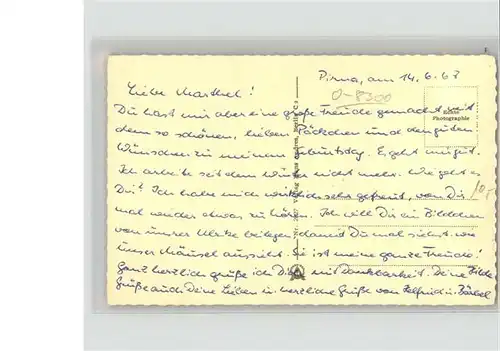 Pirna, am 14.6.63
0-8300
Liebe Marthel!
Echte
Photographie
Du hast mir aber eine große Freude gemacht mit
dem so schönen, lieben Päckchen und den guten
Wünschen zu meinem Geburtstag. Es geht mir gut.
Ich arbeite seit dem Winter nicht mehr. Wie geht es
Dir? Ich habe mich wirklich sehr gefreut, von Dir
mal wieder etwas zu hören. Ich will Dir ein Bildchen
von unser Ulrike beilegen, damit Du mal siehst, wie
unser Mäusel aussieht. Sie ist meine ganze Freude!
Ganz herzlich grüße ich Dich mit Dankbarkeit. Deine Hilde.
Grüße auch Deine Lieben u. herzliche Grüße von u. Bärbel
Verlag Berlin C 2